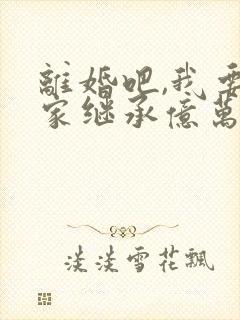 離婚吧,我要
家继承億萬
淡淡雪花飄